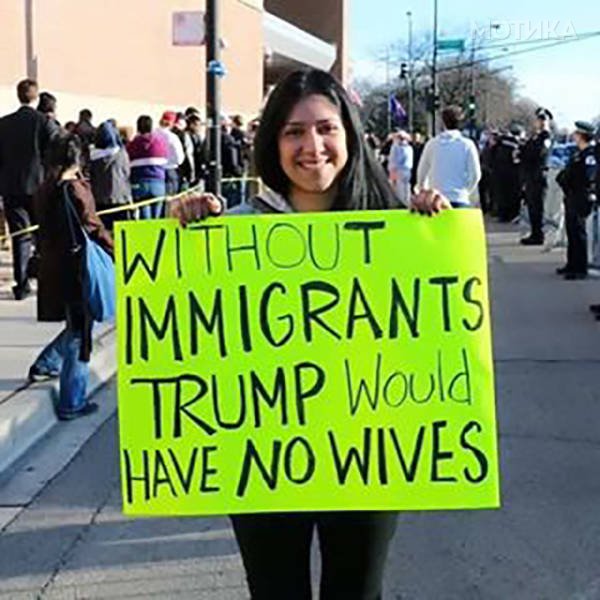 МОТИКА
WITHOUT
IMMIGRANTS
TRUMP Would
HAVE NO WIVES